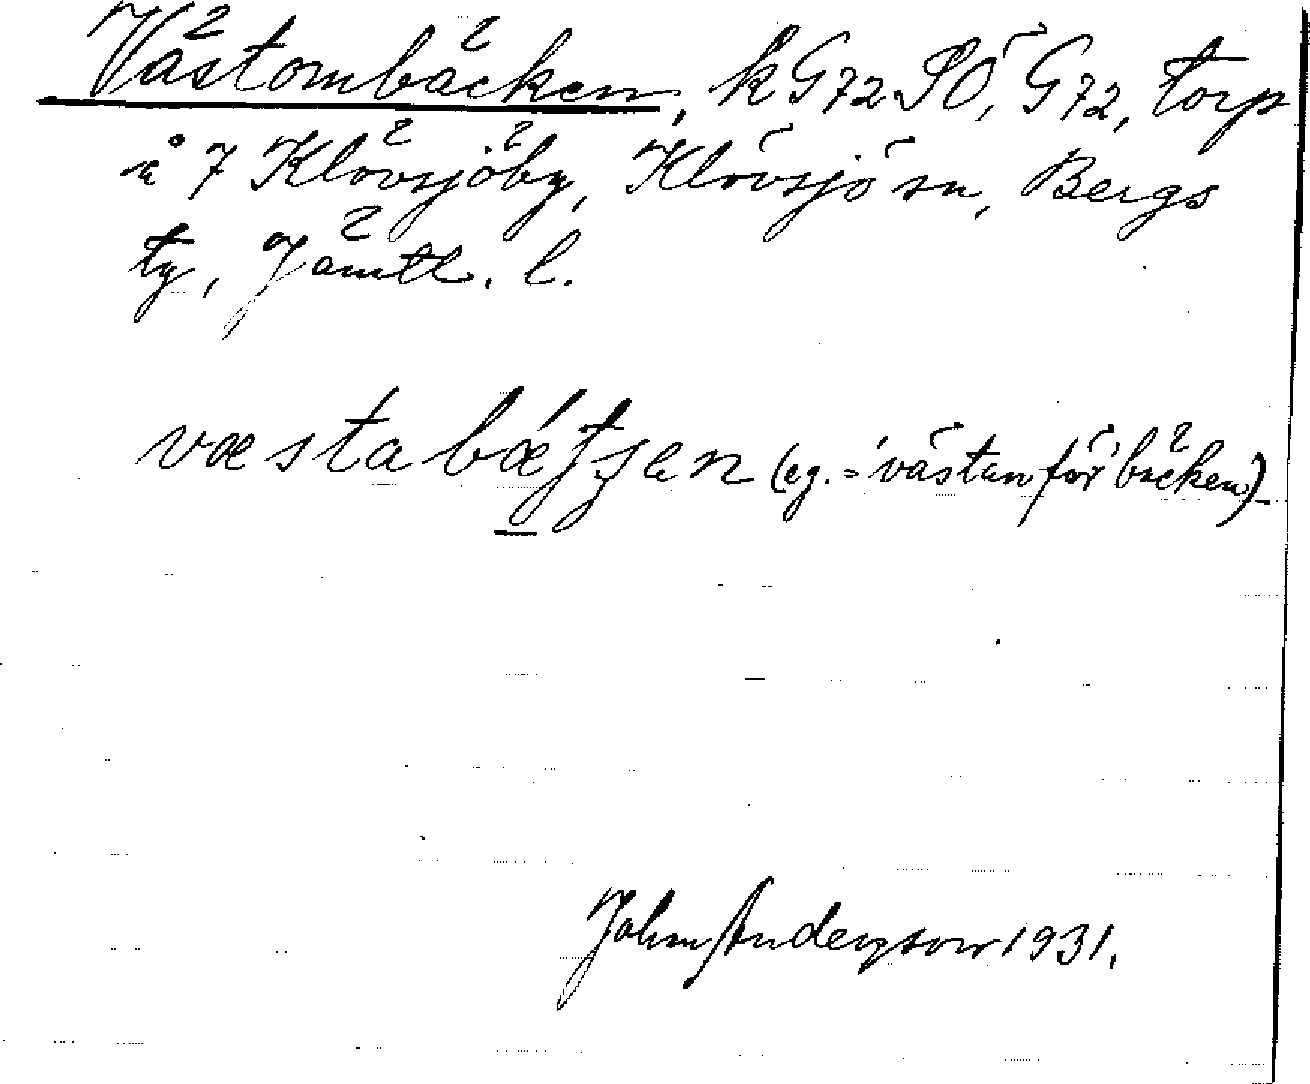 Västombäcken, k G72 SÖ, G72, torp
å 7 Klövsjöby, Klövsjö sn, Bergs
tg, Jämtl. l.
væstabǽtʃen (eg. = 'västan för bäcken')
John Anderson 1931.